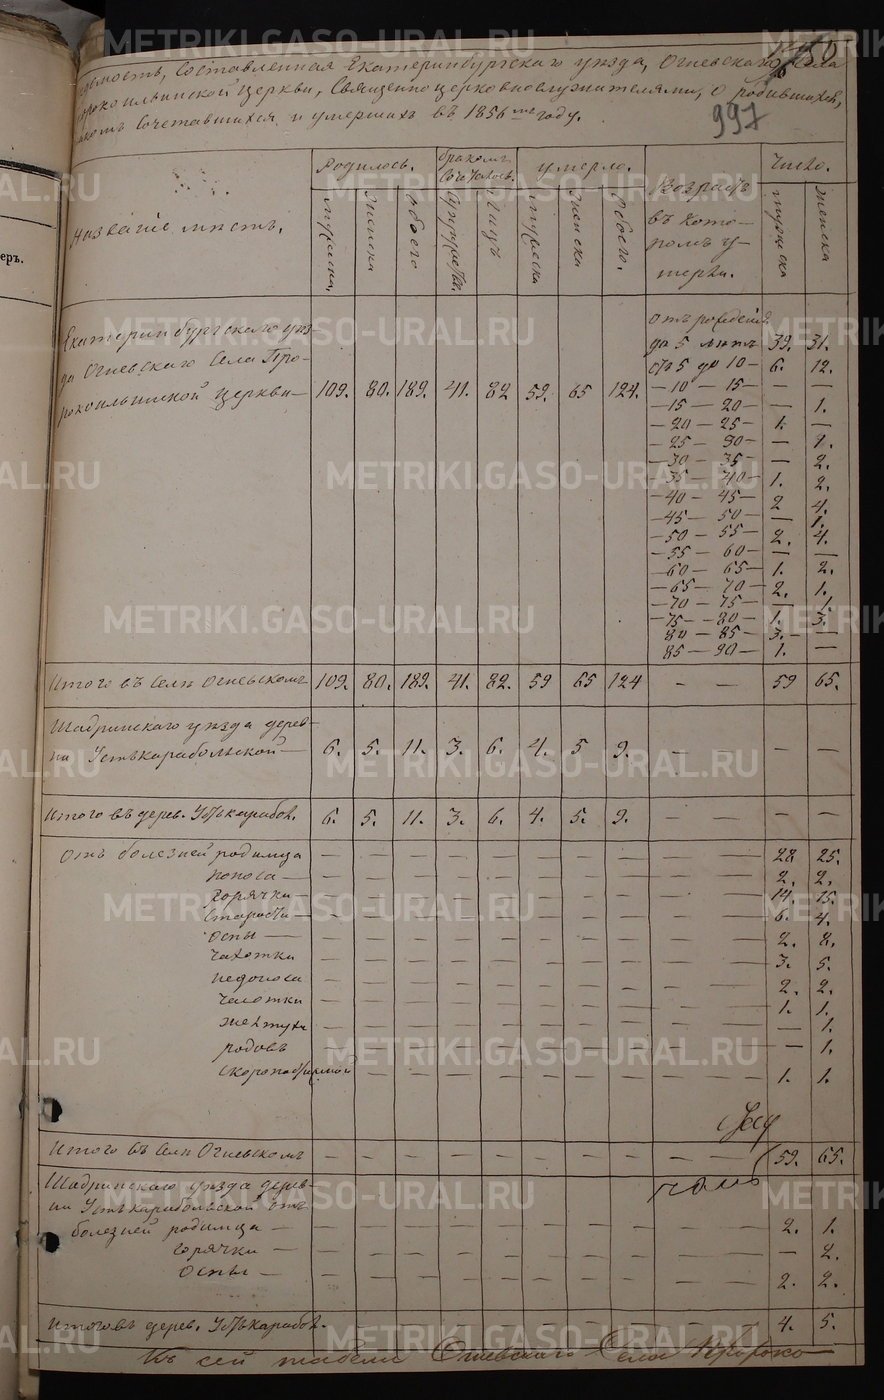 Ведомость, Составленная Екатеринбургского уѣзда, Огневскаго Села
Пророкоильинской Церкви, Священноцерковнослужителями, о родившихся,
бракомъ Сочетавшихся и умершихъ въ 1856мъ году.
997
Названіе мѣстъ.
Родилось.
бракомъ Сочеталось.
умерло.
Возрастъ въ которомъ умерли.
Число.
мужеска. женска обоего супружествъ. лицъ мужеска женска обоего. мужеска женска
Екатеринбургскаго уѣз-
да Огневскаго Села Про-
рокоильинской церкви— 109. 80. 189. 41. 82 59. 65 124.
отъ рожденія
до 5 лѣтъ 39. 31.
отъ 5 до 10— 6. 12.
—10—15— — —
—15—20— — 1.
—20—25— 1. —
—25—30— — 1.
—30—35— — 2.
—35—40— 1. 2.
—40—45— 2 4.
—45—50— — 1.
—50—55— 2. 4.
—55—60— — —
—60—65— 1. 2.
—65—70— 2. 1.
—70—75— — 1.
—75—80— 1. 3.
80—85— 3. —
85—90— 1. —
Итого въ Селѣ Огневскомъ 109. 80. 189. 41. 82. 59 65 124 — — 59 65.
Шадринскаго уѣзда дерев-
ни Устькарабольской— 6. 5. 11. 3. 6. 4. 5 9. — — — —
Итого въ дерев. Устькарабол. 6. 5. 11. 3. 6. 4. 5. 9. — — — —
Отъ болезней родимца — — — — — — — — — — 28 25.
поноса— — — — — — — — — — 2. 2.
горячки— — — — — — — — — — 14. 15.
старости— — — — — — — — — — 6. 4.
оспы— — — — — — — — — — 2. 8.
чахотки — — — — — — — — — 3. 5.
недоноса — — — — — — — — — 2. 2.
чесотки — — — — — — — — — 1. 1.
желтухи — — — — — — — — — — 1.
родовъ — — — — — — — — — — 1.
скоропостижной — — — — — — — — 1. 1.
Итого въ Селѣ Огневскомъ — — — — — — — — — 59. 65.
Шадринскаго уѣзда дерев-
ни Устькарабольской отъ
болезней родимца — — — — — — — — — — 2. 1.
горячки — — — — — — — — — — — 2.
Оспы — — — — — — — — — — 2. 2.
Итого въ дерев. Устькарабол. — — — — — — — — — 4. 5.
Къ сей табели Огневскаго Села Пророко—
ер.
METRIKI.GASO-URAL.RU